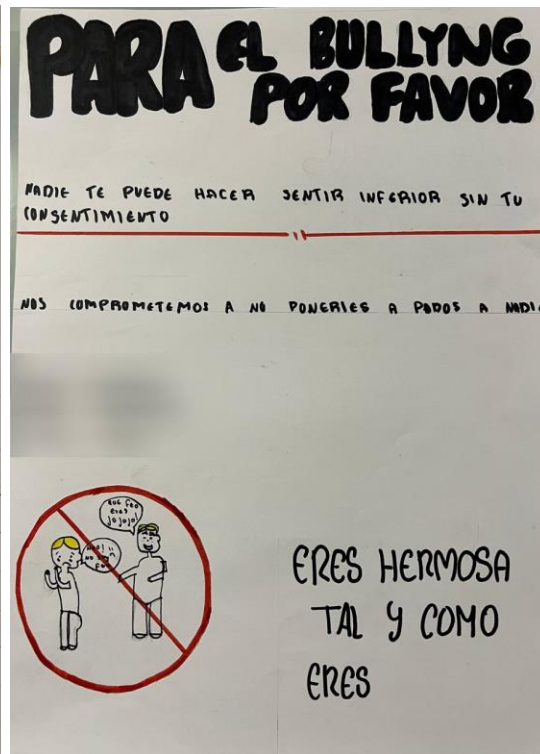 PARA EL BULLYNG
POR FAVOR
NADIE TE PUEDE HACER SENTIR INFERIOR SIN TU
CONSENTIMIENTO
NOS COMPROMETEMOS A NO PONERLES A PODOS A NADIE
QUE FEO
ERES
JAJAJA!
NO
ERES HERMOSA
TAL Y COMO
ERES